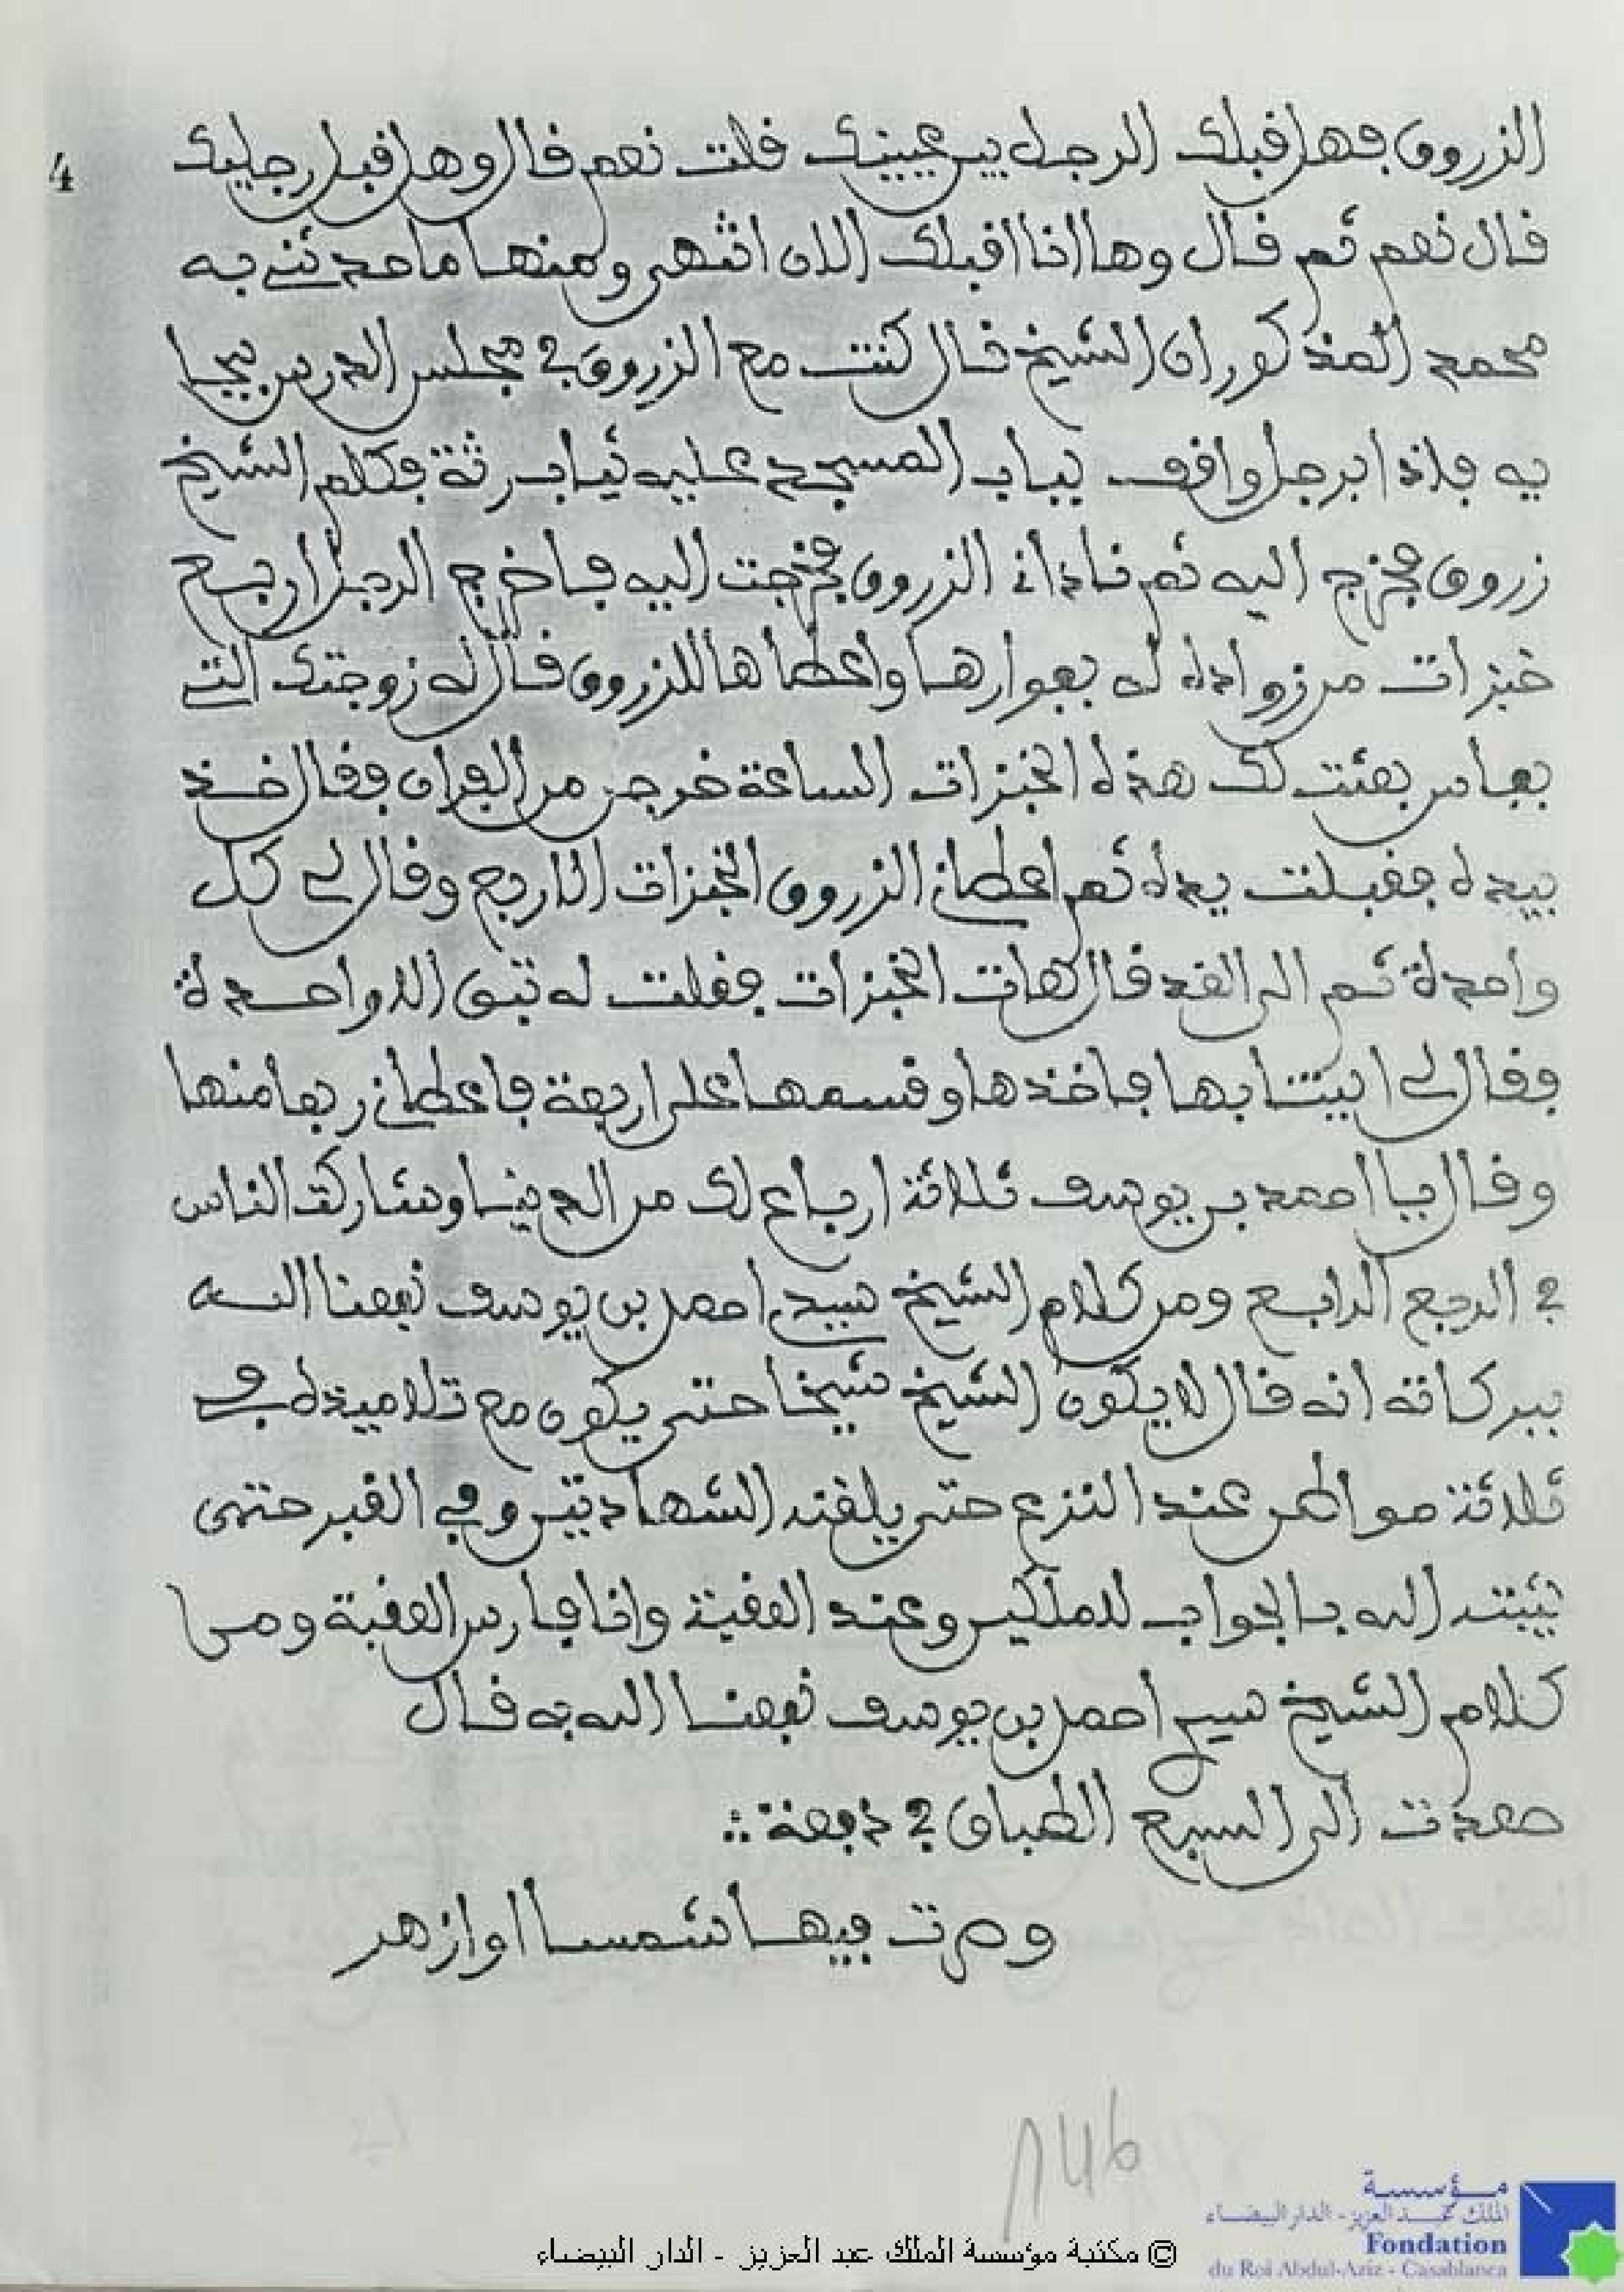 الزروق فهل قبلك الرجل بين عينيك قلت نعم قال وهل قبل رجليك
4
قال نعم ثم قال وها انا اقبلك الان انتهى ومنها ما حدثني به
محمد المذكور ان الشيخ قال كنت مع الزروق في مجلس الدرس بجا
يه فاذا برجل واقف بباب المسجد عليه ثياب رثة فكلم الشيخ
زروق فخرج اليه ثم ناداني الزروق فخرجت اليه فاخرج الرجل اربع
خبزات من زواده له بفوارها واعطاها للزروق قال له زوجتك التي
بفاس بعثت لك هذه الخبزات الساعة خرجن من الفران فقال خذ
بيده فقبلت يده ثم اعطاني الزروق الخبزات الاربع وقال لي كل
واحدة ثم الى الغد قال هات الخبزات فقلت له تبق الا واحدة
فقال لي ايتنا بها فاخذها وقسمها على اربعة فاعطاني ربعا منها
وقال يا احمد بن يوسف ثلاثة ارباع لك من الدنيا وشاركت الناس
في الربع الرابع ومن كلام الشيخ سيدي احمد بن يوسف نفعنا الله
ببركاته انه قال لا يكون الشيخ شيخا حتى يكون مع تلاميذه في
ثلاثة مواطن عند النزع حتى يلقنه الشهادتين وفي القبر حتى
يثبته الله بالجواب للملكين وعند العقبة وانا فارس العقبة ومن
كلام الشيخ سيدي احمد بن يوسف نفعنا الله به قال
صعدت الى السبع الطباق في دفعة
وصرت فيها شمسا او ازهر
146
مؤسسة
الملك عبد العزيز - الدار البيضاء
Fondation
du Roi Abdul-Aziz - Casablanca
© مكتبة مؤسسة الملك عبد العزيز - الدار البيضاء